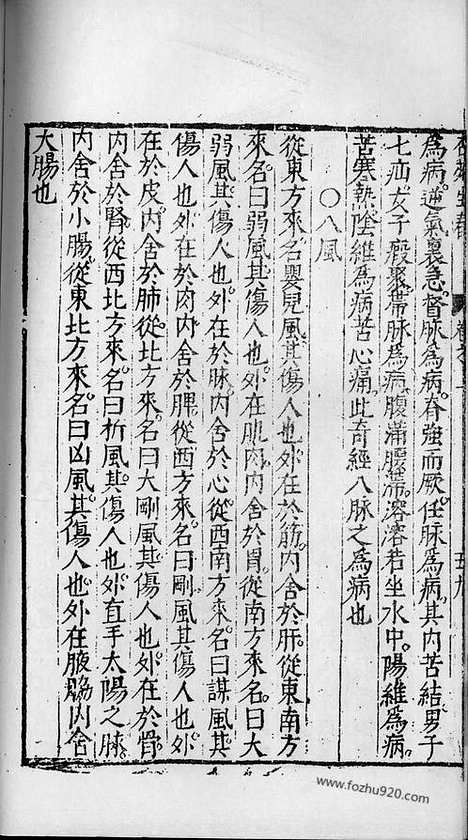 為病。逆氣裏急。督脉為病。脊強而厥。任脉為病。其内苦結。男子
七疝。女子瘕聚。帶脉為病。腹滿腰帶。溶溶若坐水中。陽維為病。
苦寒熱。陰維為病苦心痛。此奇經八脉之為病也
○八風
從東方來。名嬰兒風。其傷人也。外在於筋。内舍於肝。從東南方
來。名曰弱風。其傷人也。外在肌肉。内舍於胃。從南方來。名曰大
弱風。其傷人也。外在於脉。内舍於心。從西南方來。名曰謀風。其
傷人也。外在於肉。内舍於脾。從西方來。名曰剛風。其傷人也。外
在於皮。内舍於肺。從北方來。名曰大剛風。其傷人也。外在於骨。
内舍於腎。從西北方來。名曰折風。其傷人也。外直手太陽之脉。
内舍於小腸。從東北方來。名曰凶風。其傷人也。外在腋脇。内舍
大腸也
www.fozhu920.com